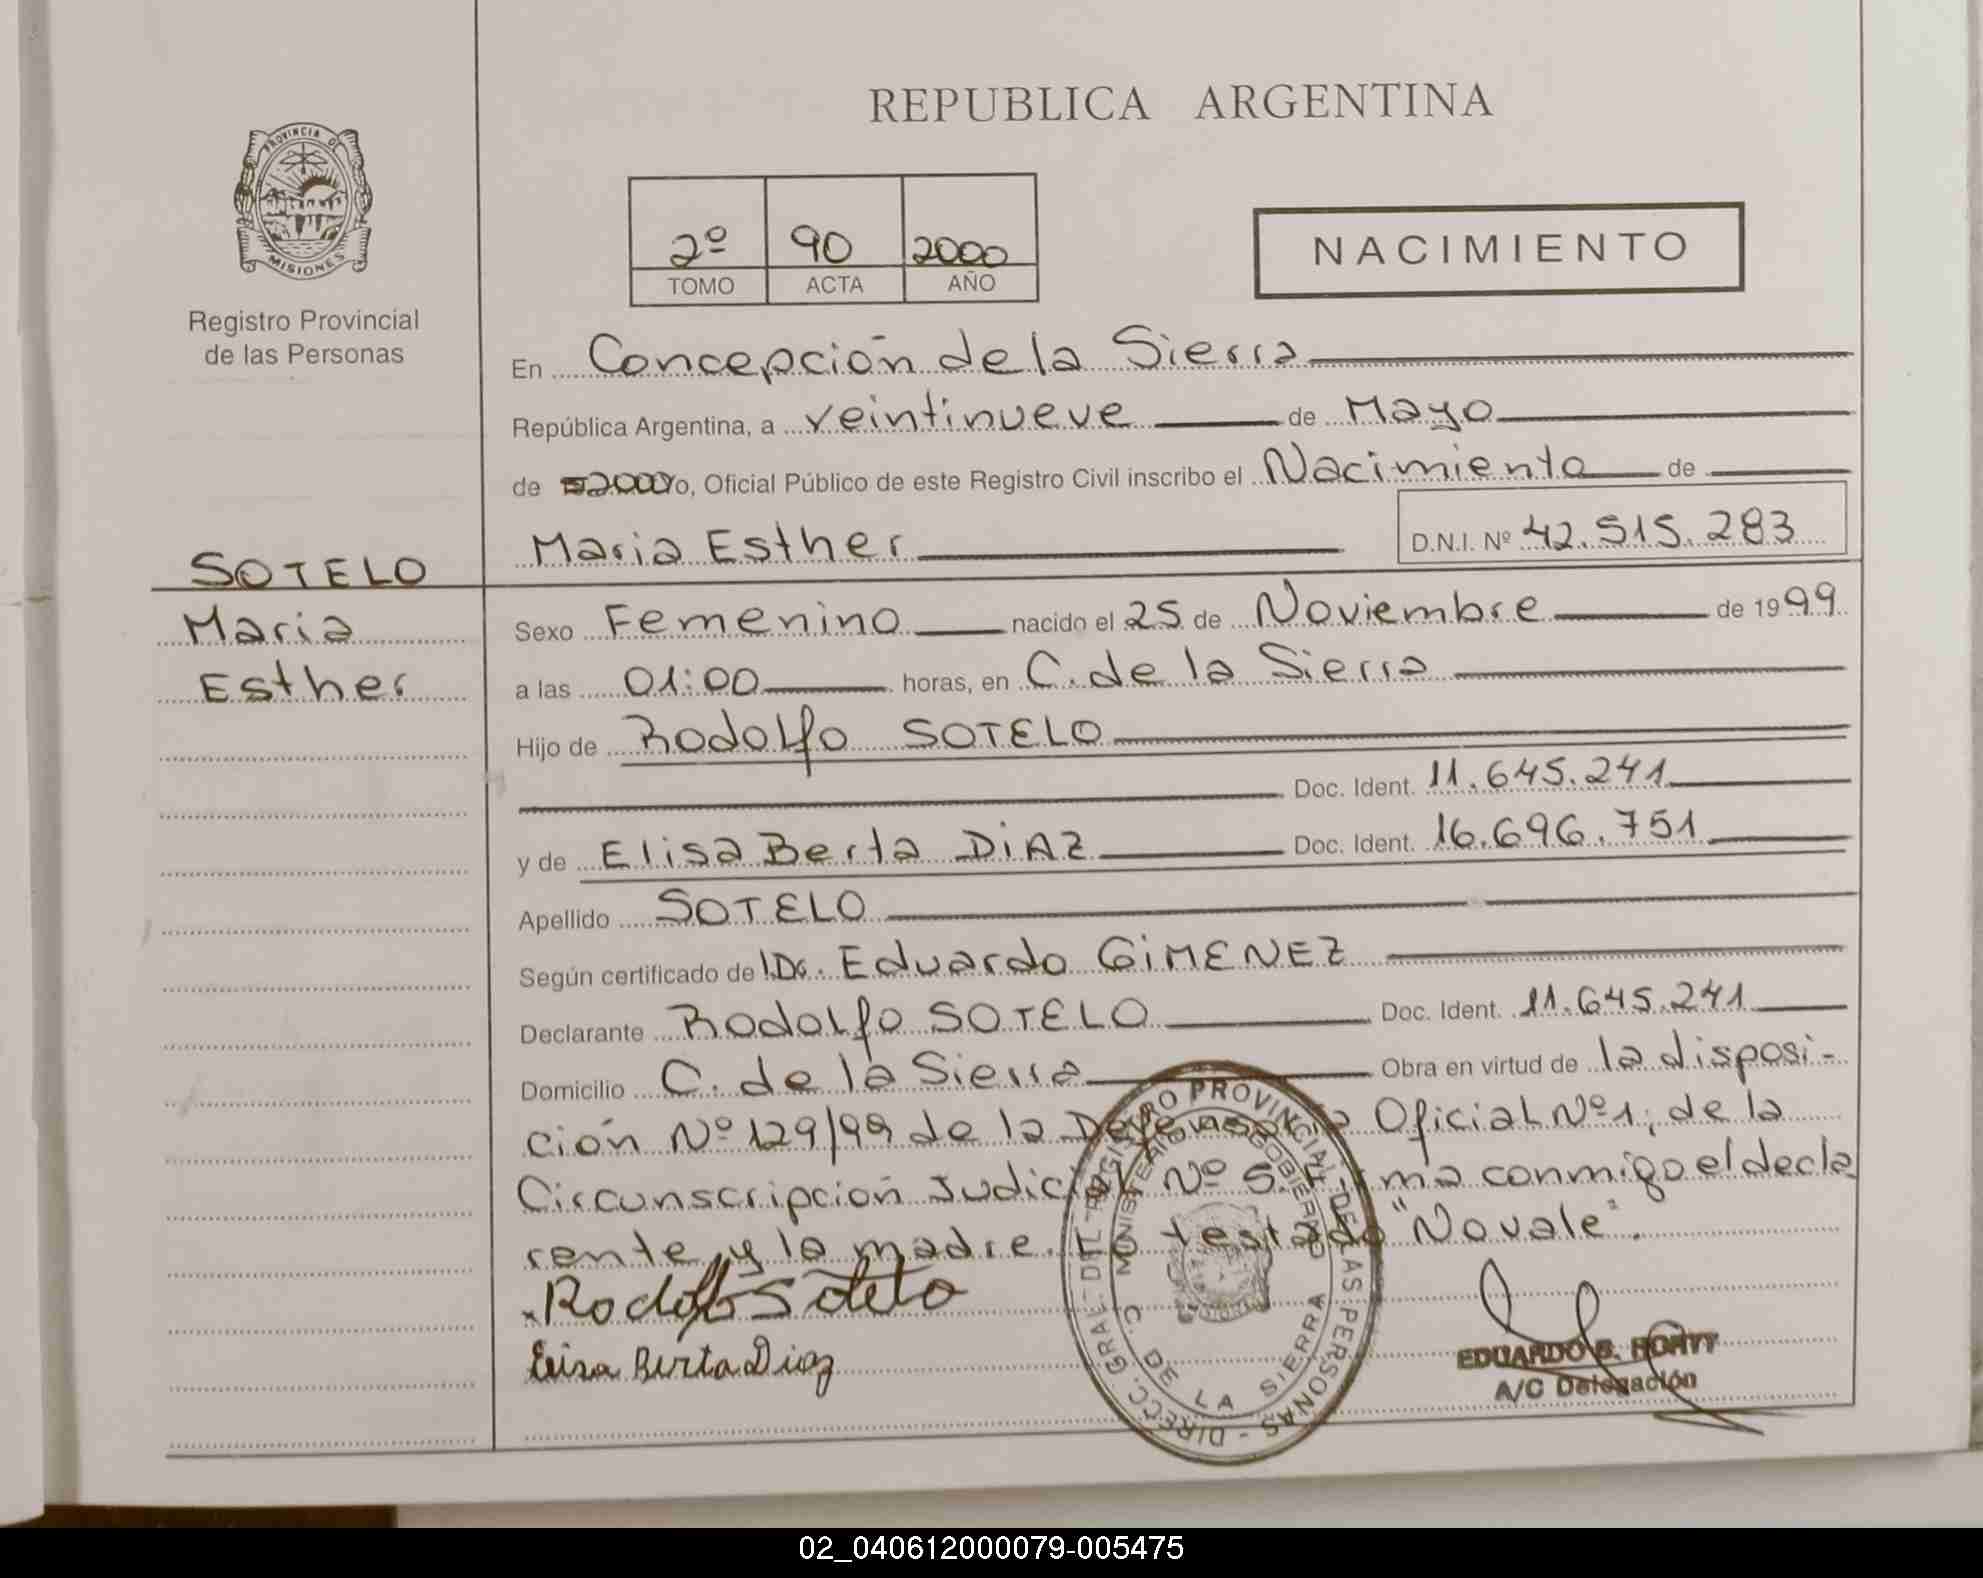 REPUBLICA ARGENTINA
PROVINCIA DE
MISIONES
Registro Provincial
de las Personas
2º 90 2000
TOMO ACTA AÑO
NACIMIENTO
En Concepción de la Sierra
República Argentina, a veintinueve de Mayo
de 2000 yo, Oficial Público de este Registro Civil inscribo el Nacimiento de
Maria Esther D.N.I. Nº 42.515.283
SOTELO
Maria
Esther
Sexo Femenino nacido el 25 de Noviembre de 1999
a las 01:00 horas, en C. de la Sierra
Hijo de Rodolfo SOTELO
Doc. Ident. 11.645.241
y de Elisa Berta DiAZ Doc. Ident. 16.696.751
Apellido SOTELO
Según certificado de Dr. Eduardo GiMENEZ
Declarante Rodolfo SOTELO Doc. Ident. 11.645.241
Domicilio C. de la Sierra Obra en virtud de la disposi-
ción Nº 129/99 de la Defensoria Oficial Nº 1, de la
Circunscripción Judicial Nº 5. Firma conmigo el decla
rente y la madre. Lo testado "No vale".
Rodolfo Sotelo
Elisa Berta Diaz
DIRECC. GRAL. DEL REGISTRO PROVINCIAL DE LAS PERSONAS -
MINISTERIO GOBIERNO
C. DE LA SIERRA
EDUARDO
A/C Delegación
02_040612000079-005475